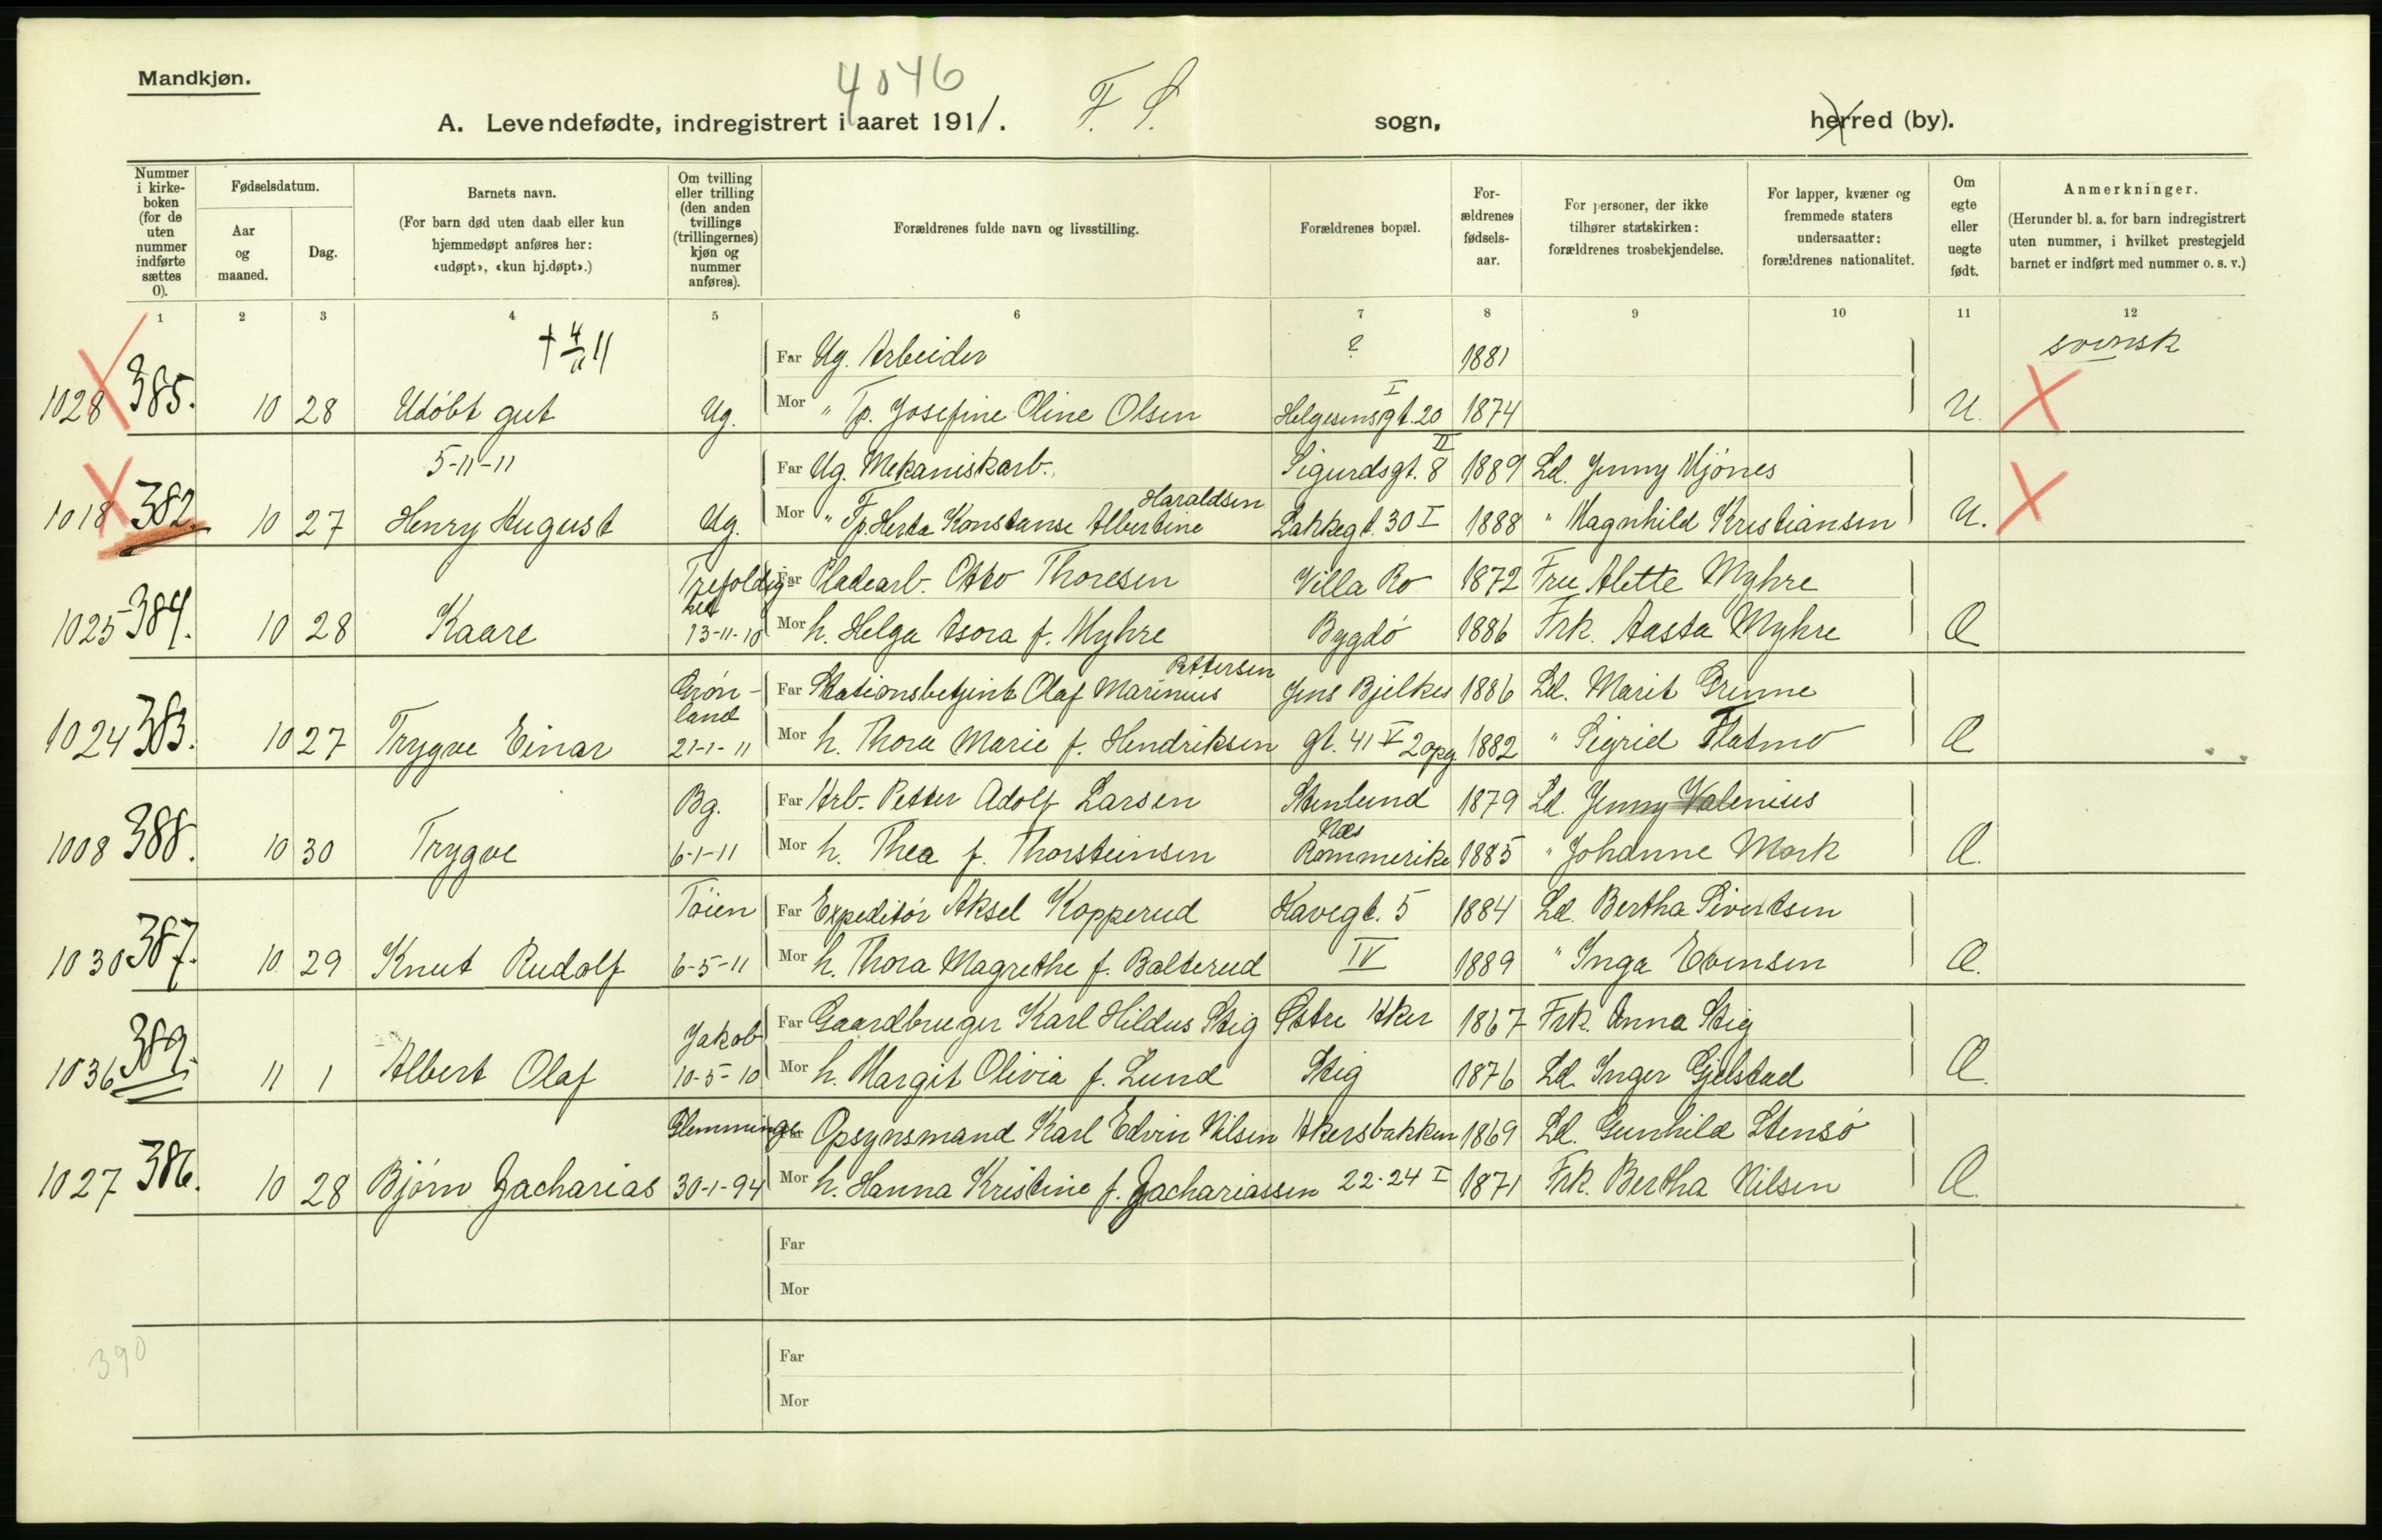 Mandkjøn.
4046
A. Levendefødte, indregistrert i aaret 1911. F. S. sogn, herred (by).
Nummer i kirke-boken (for de uten nummer indførte sættes 0).
Fødselsdatum.
Aar og maaned.
Dag.
Barnets navn.
(For barn død uten daab eller kun hjemmedøpt anføres her: «udøpt», «kun hj.døpt».)
Om tvilling eller trilling (den anden tvillings (trillingernes) kjøn og nummer anføres).
Forældrenes fulde navn og livsstilling.
Forældrenes bopæl.
For-ældrenes fødsels-aar.
For personer, der ikke tilhører statskirken: forældrenes trosbekjendelse.
For lapper, kvæner og fremmede staters undersaatter: forældrenes nationalitet.
Om egte eller uegte født.
Anmerkninger.
(Herunder bl. a. for barn indregistrert uten nummer, i hvilket prestegjeld barnet er indført med nummer o. s. v.)
1 2 3 4 5 6 7 8 9 10 11 12
† 4/11 11 Far Ug. Arbeider ? 1881 svensk
1028 385. 10 28 Udøbt gut Ug. Mor " Tp. Josefine Oline Olsen Helgesensgt. 20 I 1874 U.
5-11-11 Far Ug. Mekaniskarb. Sigurdsgt. 8 II 1889 Ld. Jenny Mjønes
1018 382. 10 27 Henry August Ug. Mor " Fp. Herta Konstanse Albertine Haraldsen Lakkegt. 30 I 1888 " Magnhild Kristiansen U.
Trefoldighed Far Pladearb. Otto Thoresen Villa Ro 1872 Fru Alette Myhre
1025 384. 10 28 Kaare 13-11-10 Mor h. Helga Asora f. Myhre Bygdö 1886 Frk. Aasta Myhre Æ
Grönland Far Stationsbetjent Olaf Marinius Pettersen Jens Bjelkes 1886 Ld. Marit Brenne
1024 383. 10 27 Trygve Einar 21-1-11 Mor h. Thora Marie f. Hendriksen gt. 41 V 2 opg. 1882 " Sigrid Flatmo Æ
Bg. Far Arb. Petter Adolf Larsen Stenlund 1879 Ld. Jenny Valenius
1008 388. 10 30 Trygve 6-1-11 Mor h. Thea f. Thorsteinsen Næs Rommerike 1885 " Johanne Mork Æ.
Töien Far Expeditör Aksel Kopperud Havegt. 5 1884 Ld. Bertha Sivertsen
1030 387. 10 29 Knut Rudolf 6-5-11 Mor h. Thora Magrethe f. Balterud IV 1889 " Inga Evensen Æ.
Jakob Far Gaardbruger Karl Hildus Stig Østre Aker 1867 Frk. Anna Stig
1036 389. 11 1 Albert Olaf 10-5-10 Mor h. Margit Olivia f. Lund Stig 1876 Ld. Inger Gjelstad Æ.
Glemminge Far Opsynsmand Karl Edvin Nilsen Akersbakken 1869 Ld. Gunhild Stensö
1027 386. 10 28 Bjørn Zacharias 30-1-94 Mor h. Hanna Kristine f. Zachariassen 22-24 I 1871 Frk. Bertha Nilsen Æ.
Far
Mor
390
Far
Mor